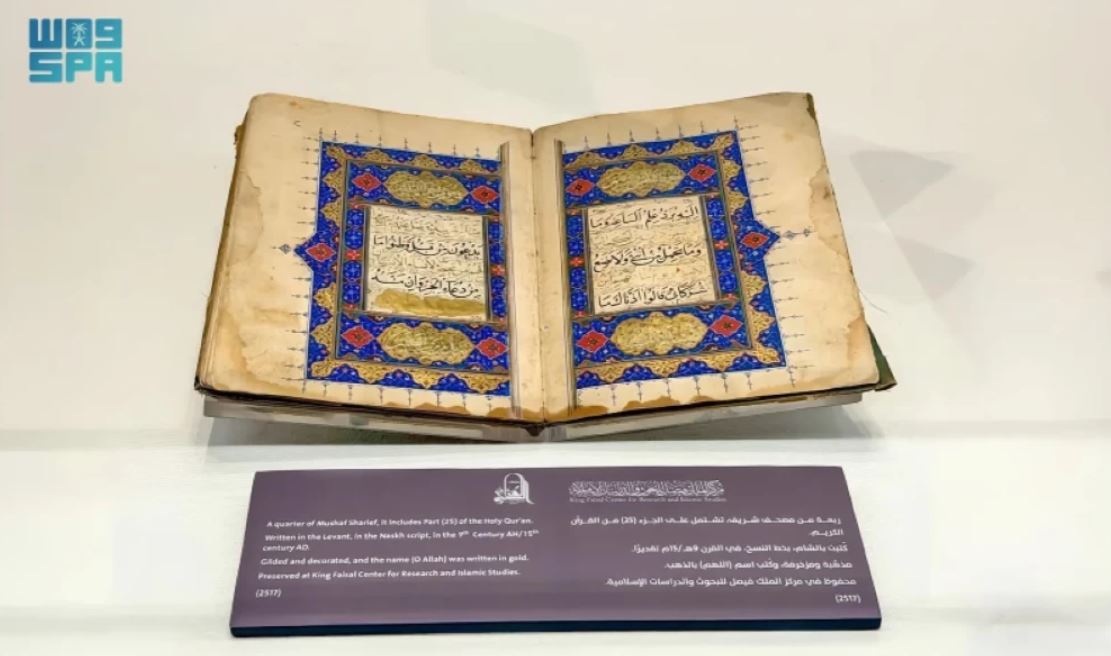 واس
SPA
اليه يرد علم الساعة وما
وما تحمل من أنثى ولا تضع
شركائي قالوا آذناك ما
يدعون من قبل وظنوا ما
من دعاء الخير وإن مسه
King Faisal Center for Research and Islamic Studies
A quarter of Mushaf Sharief, it includes Part (25) of the Holy Qur'an.
Written in the Levant, in the Naskh script, in the 9th Century AH/15th
century AD.
Gilded and decorated, and the name (O Allah) was written in gold.
Preserved at King Faisal Center for Research and Islamic Studies.
(2517)
مركز الملك فيصل للبحوث والدراسات الإسلامية
ربعة من مصحف شريف، تشتمل على الجزء (25) من القرآن
الكريم.
كُتبت بالشام، بخط النسخ، في القرن 9هـ/15م تقديرًا.
مذهّبة ومزخرفة، وكُتب اسم (اللهم) بالذهب.
محفوظ في مركز الملك فيصل للبحوث والدراسات الإسلامية.
(2517)